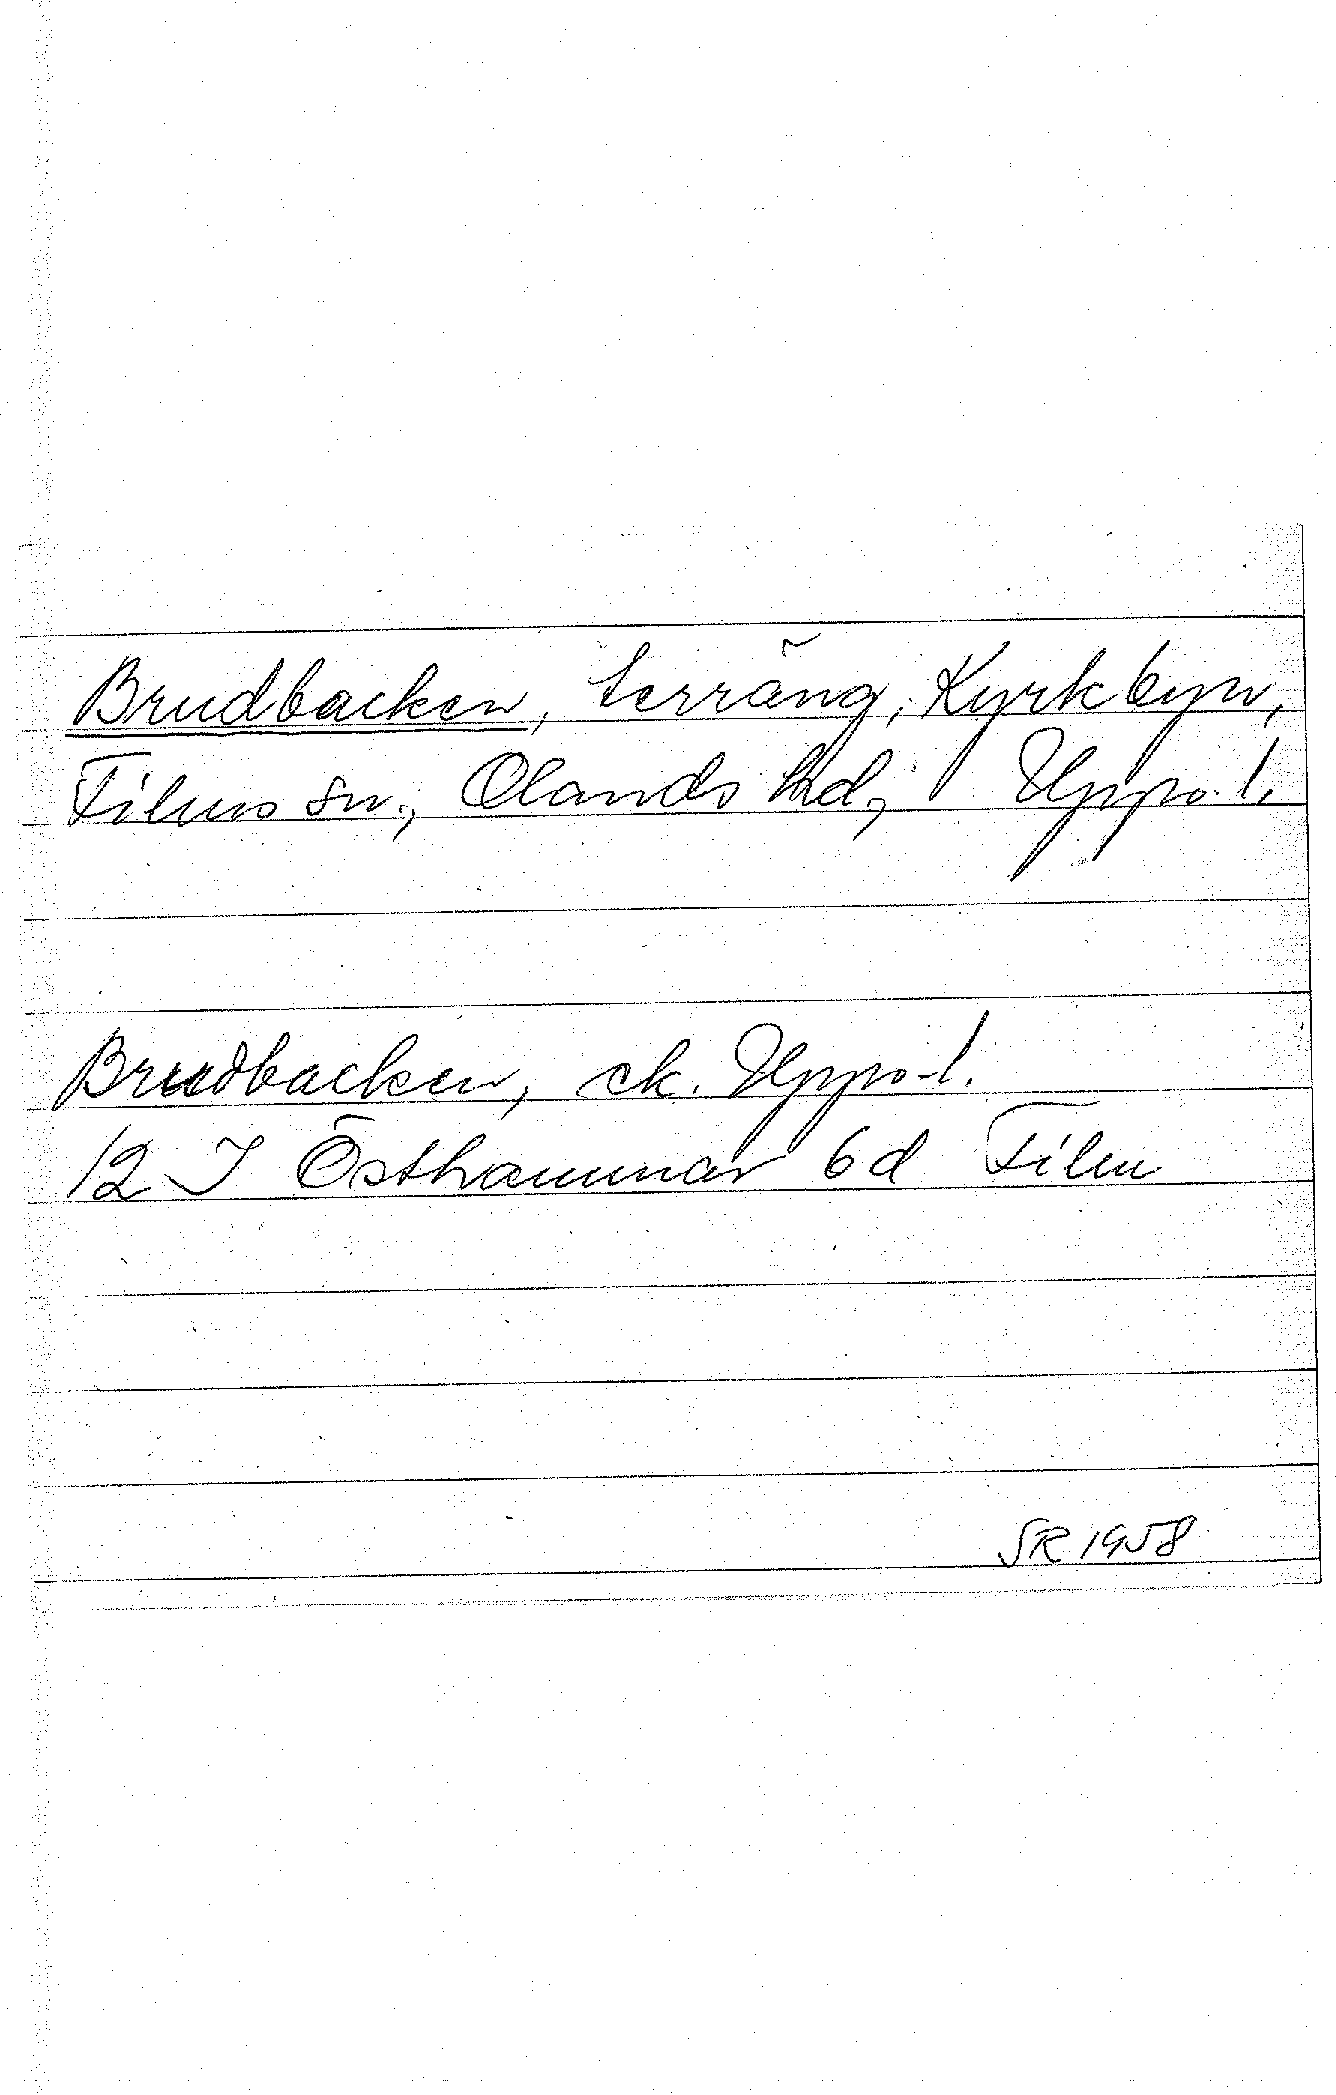 Brudbacken, terräng, Kyrkbyn,
Films sn., Olands hd, Uppl.
Brudbacken, ek. Uppl.
12 I Östhammar 6d Film
SR 1958